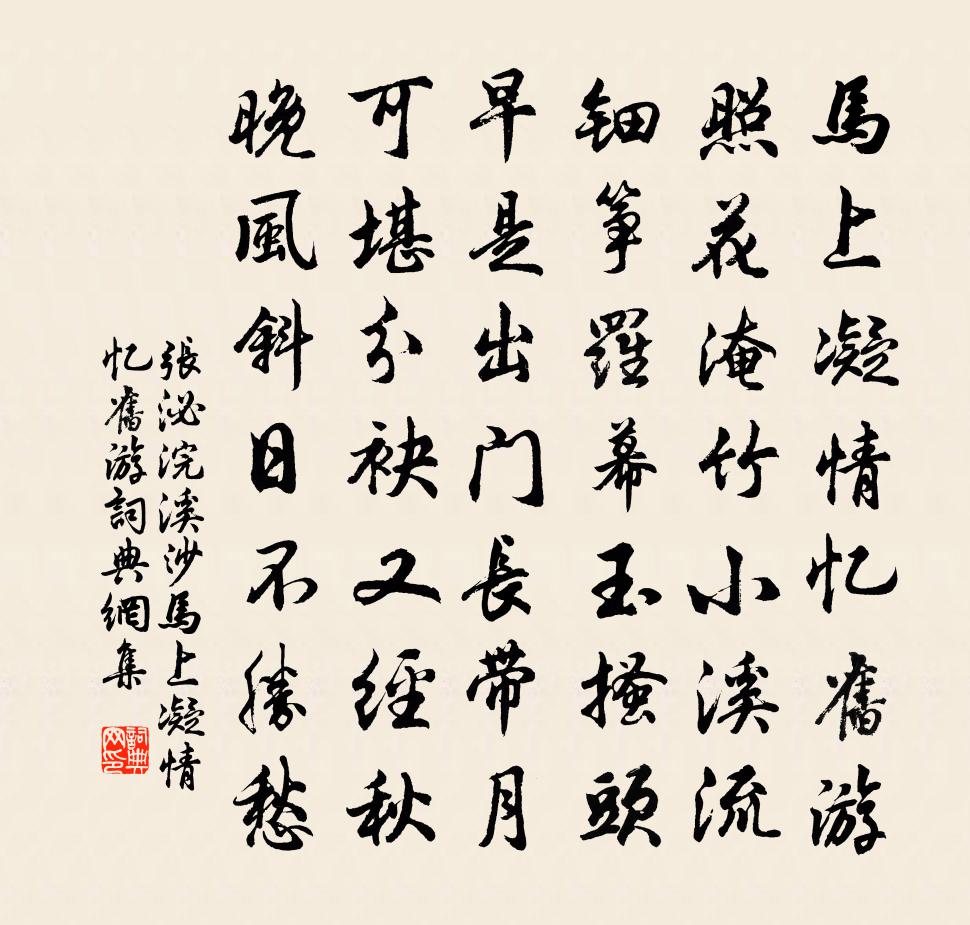 馬上凝情忆舊游
照花淹竹小溪流
钿筝羅幕玉搔頭
早是出门長带月
可堪分袂又經秋
晚風斜日不勝愁
張泌浣溪沙馬上凝情
忆舊游詞典網集
詞典
网印